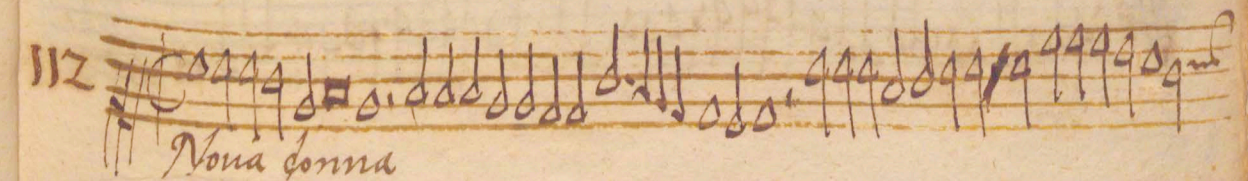 112
Noua donna